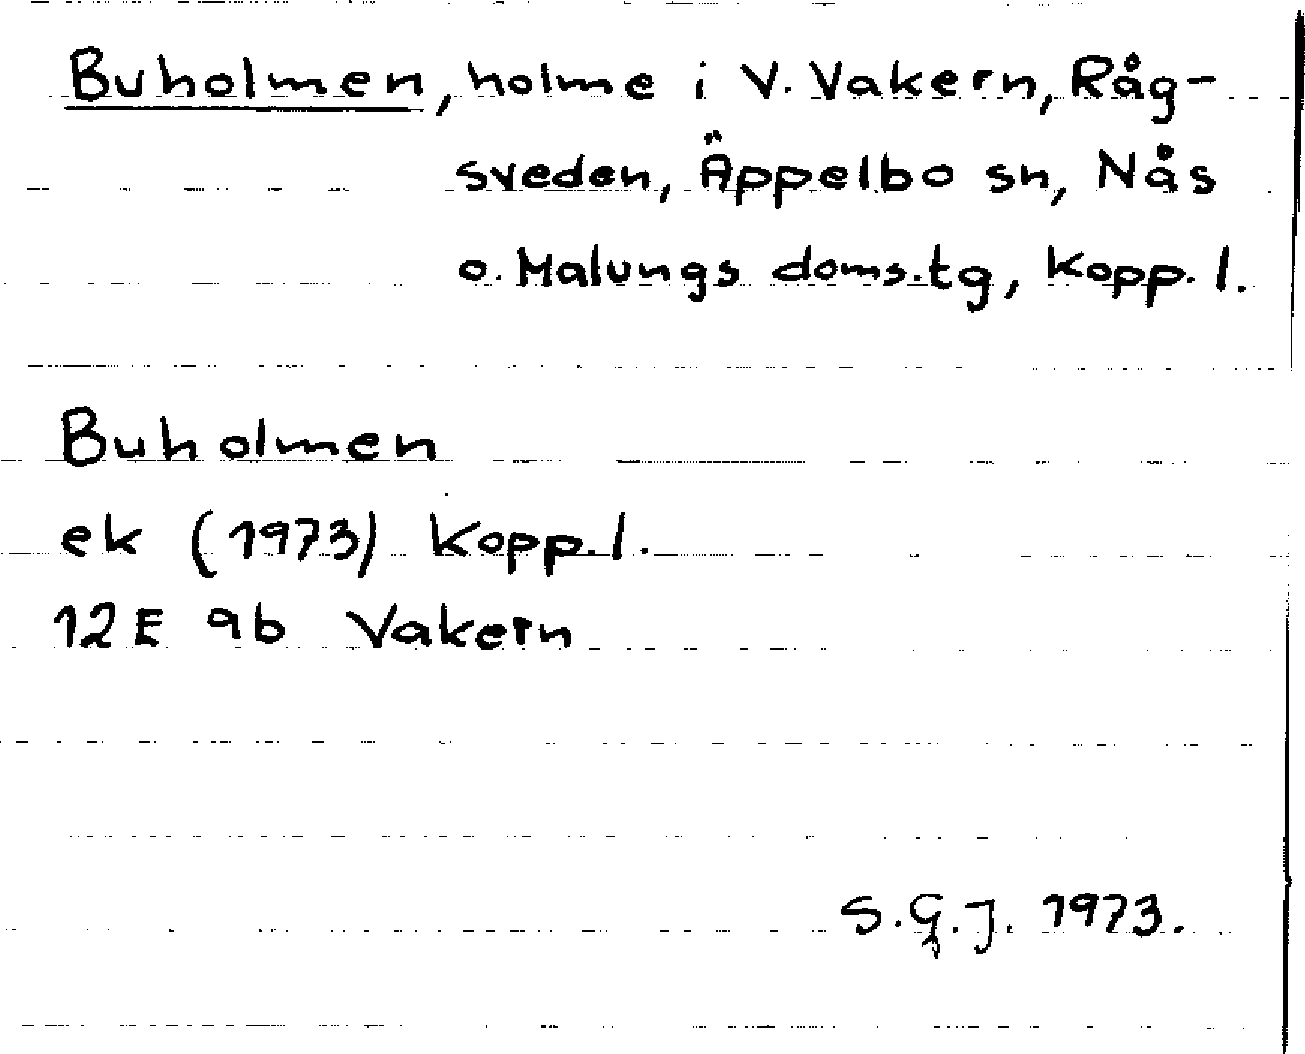 Buholmen, holme i V. Vakern, Råg-
sveden, Äppelbo sn, Nås
o. Malungs doms.tg, Kopp. l.
Buholmen
ek (1973) Kopp. l.
12E 9b Vakern
S.G.J. 1973.